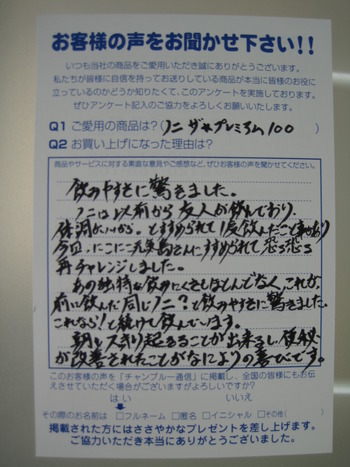 お客様の声をお聞かせ下さい!!
いつも当社の商品をご愛用いただき誠にありがとうございます。
私たちが皆様に自信を持ってお送りしている商品が本当に皆様のお役に
立っているのかどうか知りたくて、このアンケートを実施しております。
ぜひアンケート記入のご協力をよろしくお願いいたします。
Q1 ご愛用の商品は?(ノニ ザ・プレミアム100)
Q2 お買い上げになった理由は?
商品やサービスに対する素直な意見やご感想など、ぜひお客様の声を聞かせてください。
飲みやすさに驚きました。
ノニは以前から友人が飲んでおり、
体調がいいから。とすすめられて1度飲んだこと事があり
今回、にこにこ元気島さんにすすめられて恐る恐る
再チャレンジしました。
あの独特な飲みにくさもほとんどなく、これが、
前に飲んだ同じノニ?と飲みやすさに驚きました。
これなら!と続けて飲んでいます。
朝もスッキリ起きることが出来るし、便秘
が改善されたことがなによりの喜びです。
このお客様の声を「チャンプルー通信」に掲載し、全国の皆様にもお伝
えさせていただく場合がございますがよろしいですか?
はい いいえ
その際のお名前は □フルネーム □匿名 □イニシャル □その他( )
掲載された方にはささやかなプレゼントを差し上げます。
ご協力いただき本当にありがとうございました。